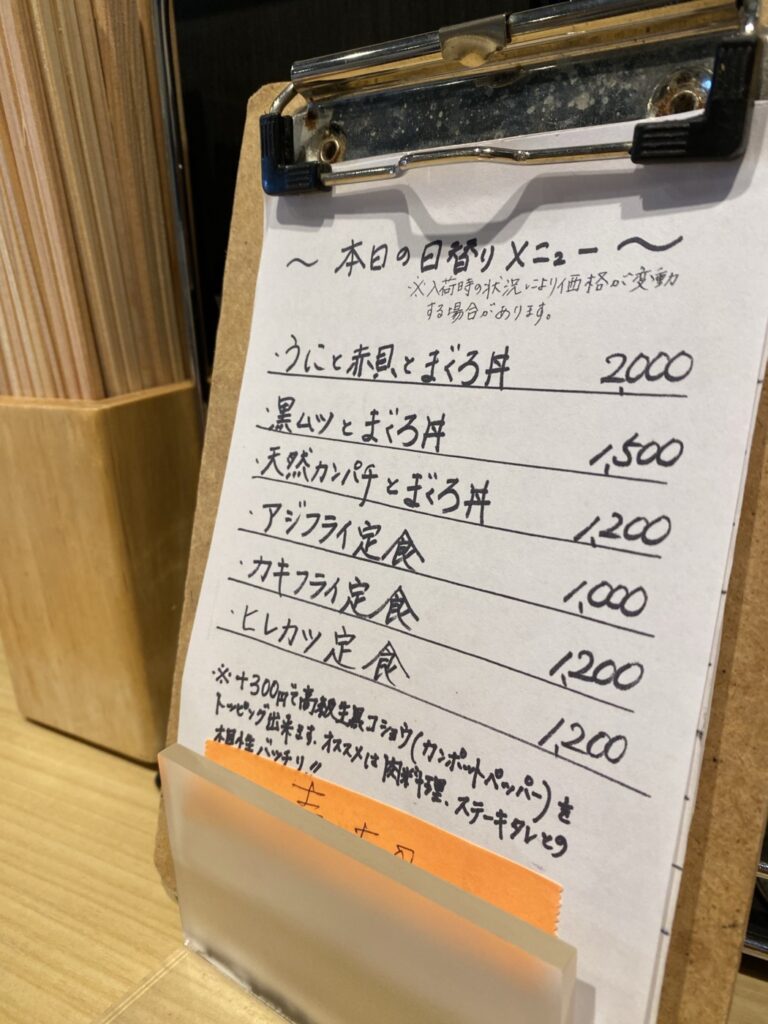 ～ 本日の日替りメニュー ～
※入荷時の状況により価格が変動
する場合があります。
・うにと赤貝とまぐろ丼 2,000
・黒ムツとまぐろ丼 1,500
・天然カンパチとまぐろ丼 1,200
・アジフライ定食 1,000
・カキフライ定食 1,200
・ヒレカツ定食 1,200
※+300円で高級生黒コショウ(カンポットペッパー)を
トッピング出来ます、オススメは肉料理、ステーキタレとの
相性バッチリ!!